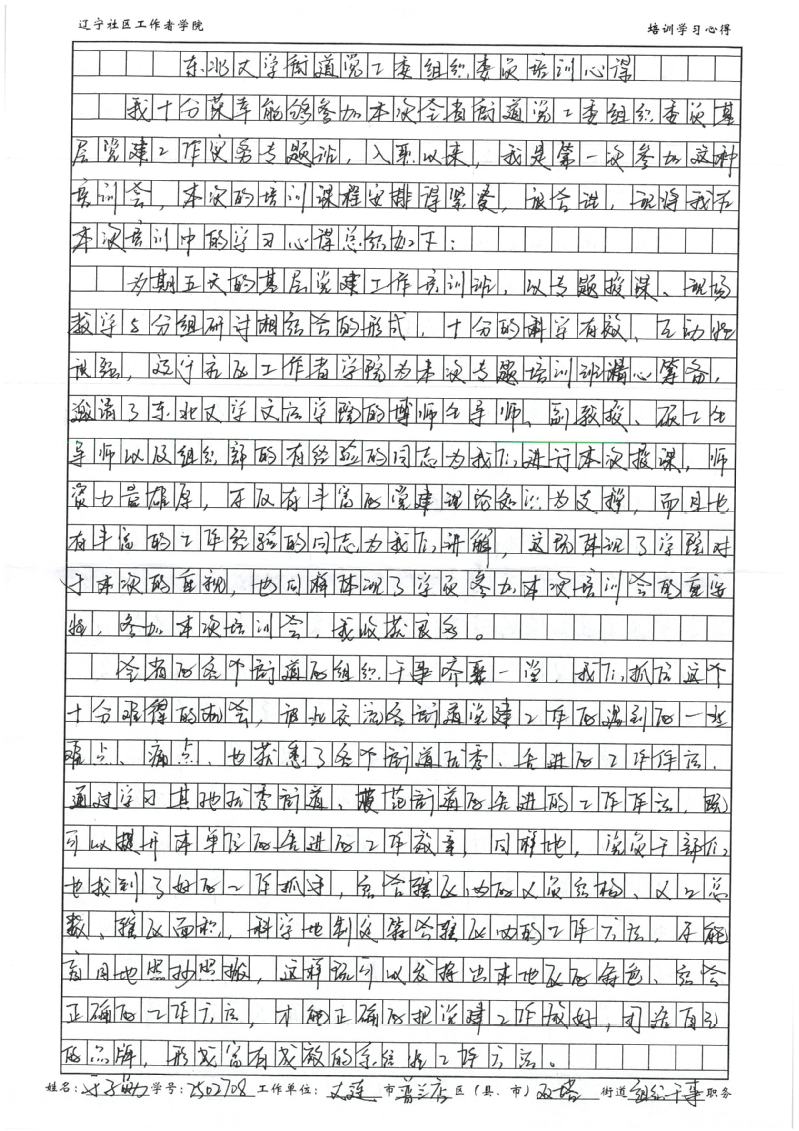 辽宁社区工作者学院 培训学习心得
东北大学街道党工委组织委员培训心得
我十分荣幸能够参加本次全省街道党工委组织委员基
层党建工作实务专题班，入职以来，我是第一次参加这种
培训会，本次的培训课程安排得紧凑，很合理，现将我在
本次培训中的学习心得总结如下：
为期五天的基层党建工作培训班，以专题授课、现场
教学与分组研讨相结合的形式，十分的科学有效、互动性
很强，辽宁社区工作者学院为本次专题培训班精心筹备，
邀请了东北大学文法学院的博师生导师、副教授、硕士生
导师以及组织部的有经验的同志为我们进行本次授课，师
资力量雄厚，不仅有丰富的党建理论知识为支撑，而且也
有丰富的工作经验的同志为我们讲解，这既体现了学院对
于本次的重视，也同样体现了学员参加本次培训会的重要
性，参加本次培训会，我收获良多。
全省的各个街道的组织干事齐聚一堂，我们抓住这个
十分难得的机会，彼此交流各街道党建工作的遇到的一些
难点、痛点，也获悉了各个街道优秀、先进的工作作法，
通过学习其他优秀街道、模范街道的先进的工作作法，既
可以提升本单位的先进的工作效率，同样地，党员干部们
也找到了好的工作抓手，结合辖区内的人员结构、人口总
数、辖区面积，科学地制定符合辖区内的工作方法，不能
盲目地照抄照搬，这样既可以发挥出本地区的特色、结合
正确的工作方法，才能正确的把党建工作做好，打造自己
的品牌，形成富有成效的系统性工作方法。
姓名： 学号：2502708 工作单位：大连市普兰店区（县、市）双塔街道组织干事职务